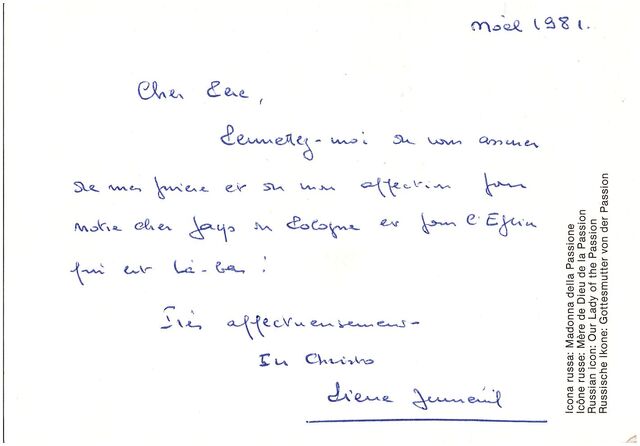 Noël 1981.
Cher Père,
Permettez-moi de vous assurer
de mes prière et de mon affection pour
notre cher pays de Pologne et pour l'Eglise
qui est là-bas !
Très affectueusement
In Christo
Pierre
Icona russa: Madonna della Passione
Icône russe: Mère de Dieu de la Passion
Russian icon: Our Lady of the Passion
Russische Ikone: Gottesmutter von der Passion